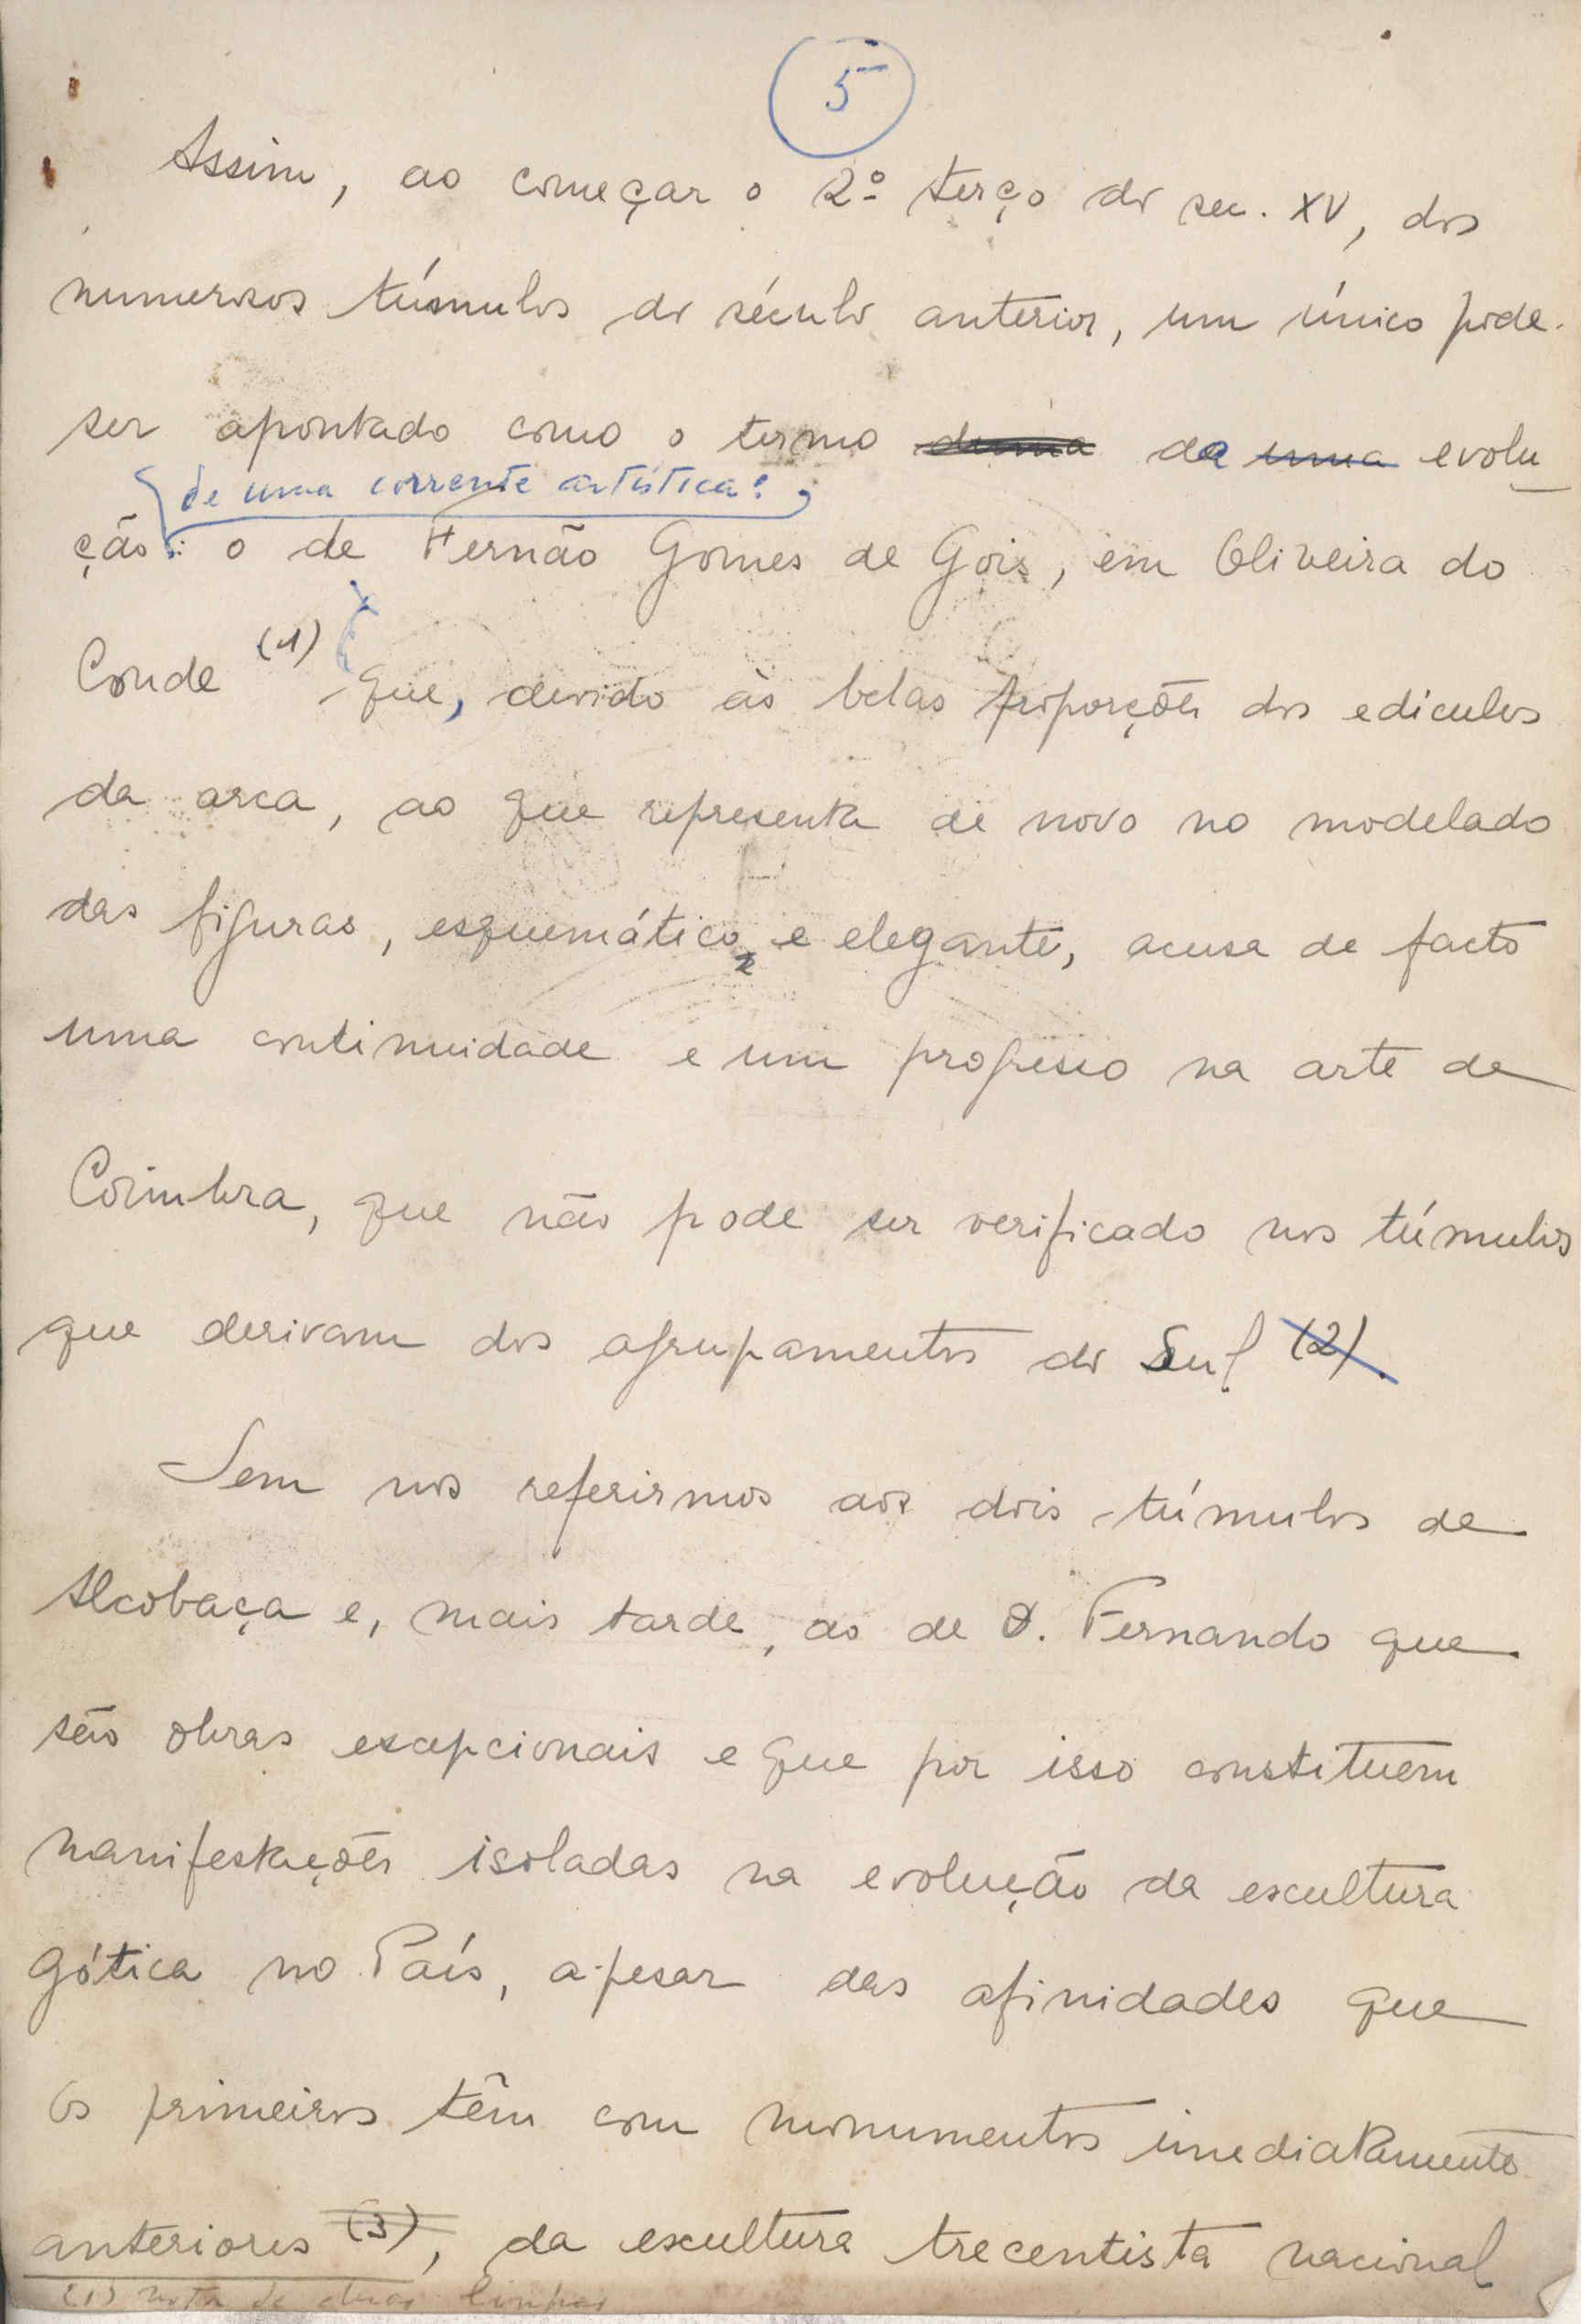 5
Assim, ao começar o 2º terço do sec. XV, dos
numerosos túmulos do século anterior, um único pode
ser apontado como o termo duma da uma evolu
de uma corrente artística:
ção: o de Fernão Gomes de Gois, em Oliveira do
Conde (1) que, devido às belas proporções dos edículos
da arca, ao que representa de novo no modelado
das figuras, esquemático e elegante, acusa de facto
uma continuidade e um progresso na arte de
Coimbra, que não pode ser verificado nos túmulos
que derivam dos agrupamentos do Sul (2).
Sem nos referirmos aos dois túmulos de
Alcobaça e, mais tarde, ao de D. Fernando que
são obras excepcionais e que por isso constituem
manifestações isoladas na evolução da escultura
gótica no País, apesar das afinidades que
os primeiros têm com monumentos imediatamente
anteriores (3), da escultura trecentista nacional
(1) nota de duas linhas